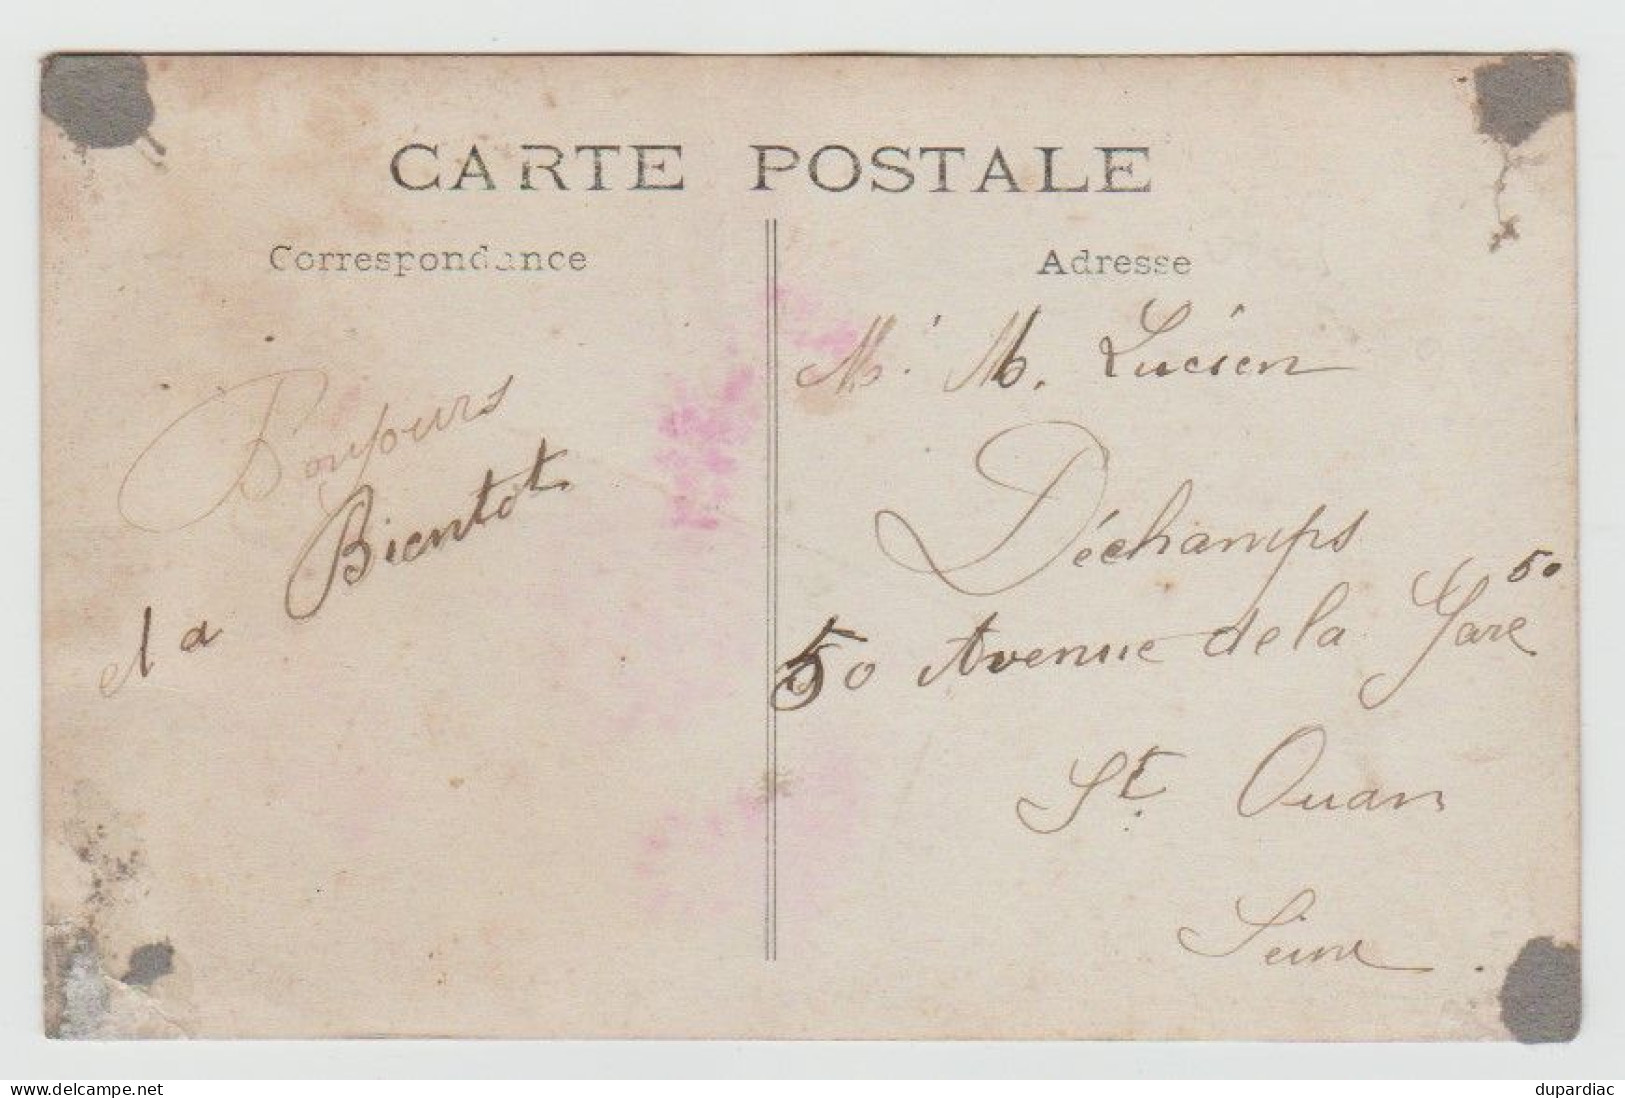 CARTE POSTALE
Correspondance
Adresse
Bonjours
et a Bientot
M' M. Lucien
Déchamps
50 Avenue de la Gare 50
St. Ouan
Seine
delcampe.net
dupardiac